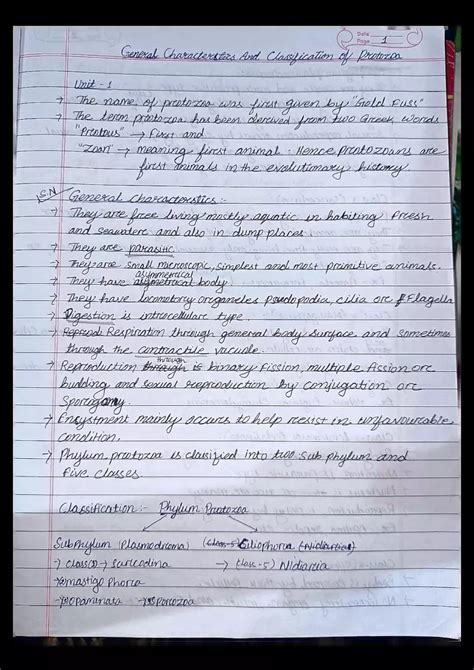 Date
Page 1
General Characterstics And Classification of Protozoa
Unit - 1
→ The name of protozoa was first given by "Gold Fuss"
→ The term protozoa has been derived from two Greek words
"Protous" → First and
"Zoan" → meaning first animal. Hence protozoans are
first animals in the evolutionary history.
S.N General characterstics :-
→ They are free living mostly aquatic in habiting Fresh
and seawater and also in dump places
→ They are parasitic
→ They are small microscopic, simplest and most primitive animals.
asymmetrical
→ They have body
→ They have locomotory organeles pseudopodia, cilia or Flagella
→ Digestion is intracellular type.
→ Respiration through general body surface and sometimes
through the contractile vacuole.
through
→ Reproduction binary fission, multiple fission or
budding and sexual reproduction by conjugation or
Sporogony.
→ Encystment mainly occurs to help resist in unfavourable
condition.
→ Phylum protozoa is classified into two sub phylum and
five classes.
Classification :- Phylum Protozoa
Subphylum (Plasmodroma) (Class-5) Ciliophora (Nidiartia)
→ class(1) → Sarcodina → (class-5) Nidiarcia
→ mastigo Phorea
→ opaminata → Sporozoa